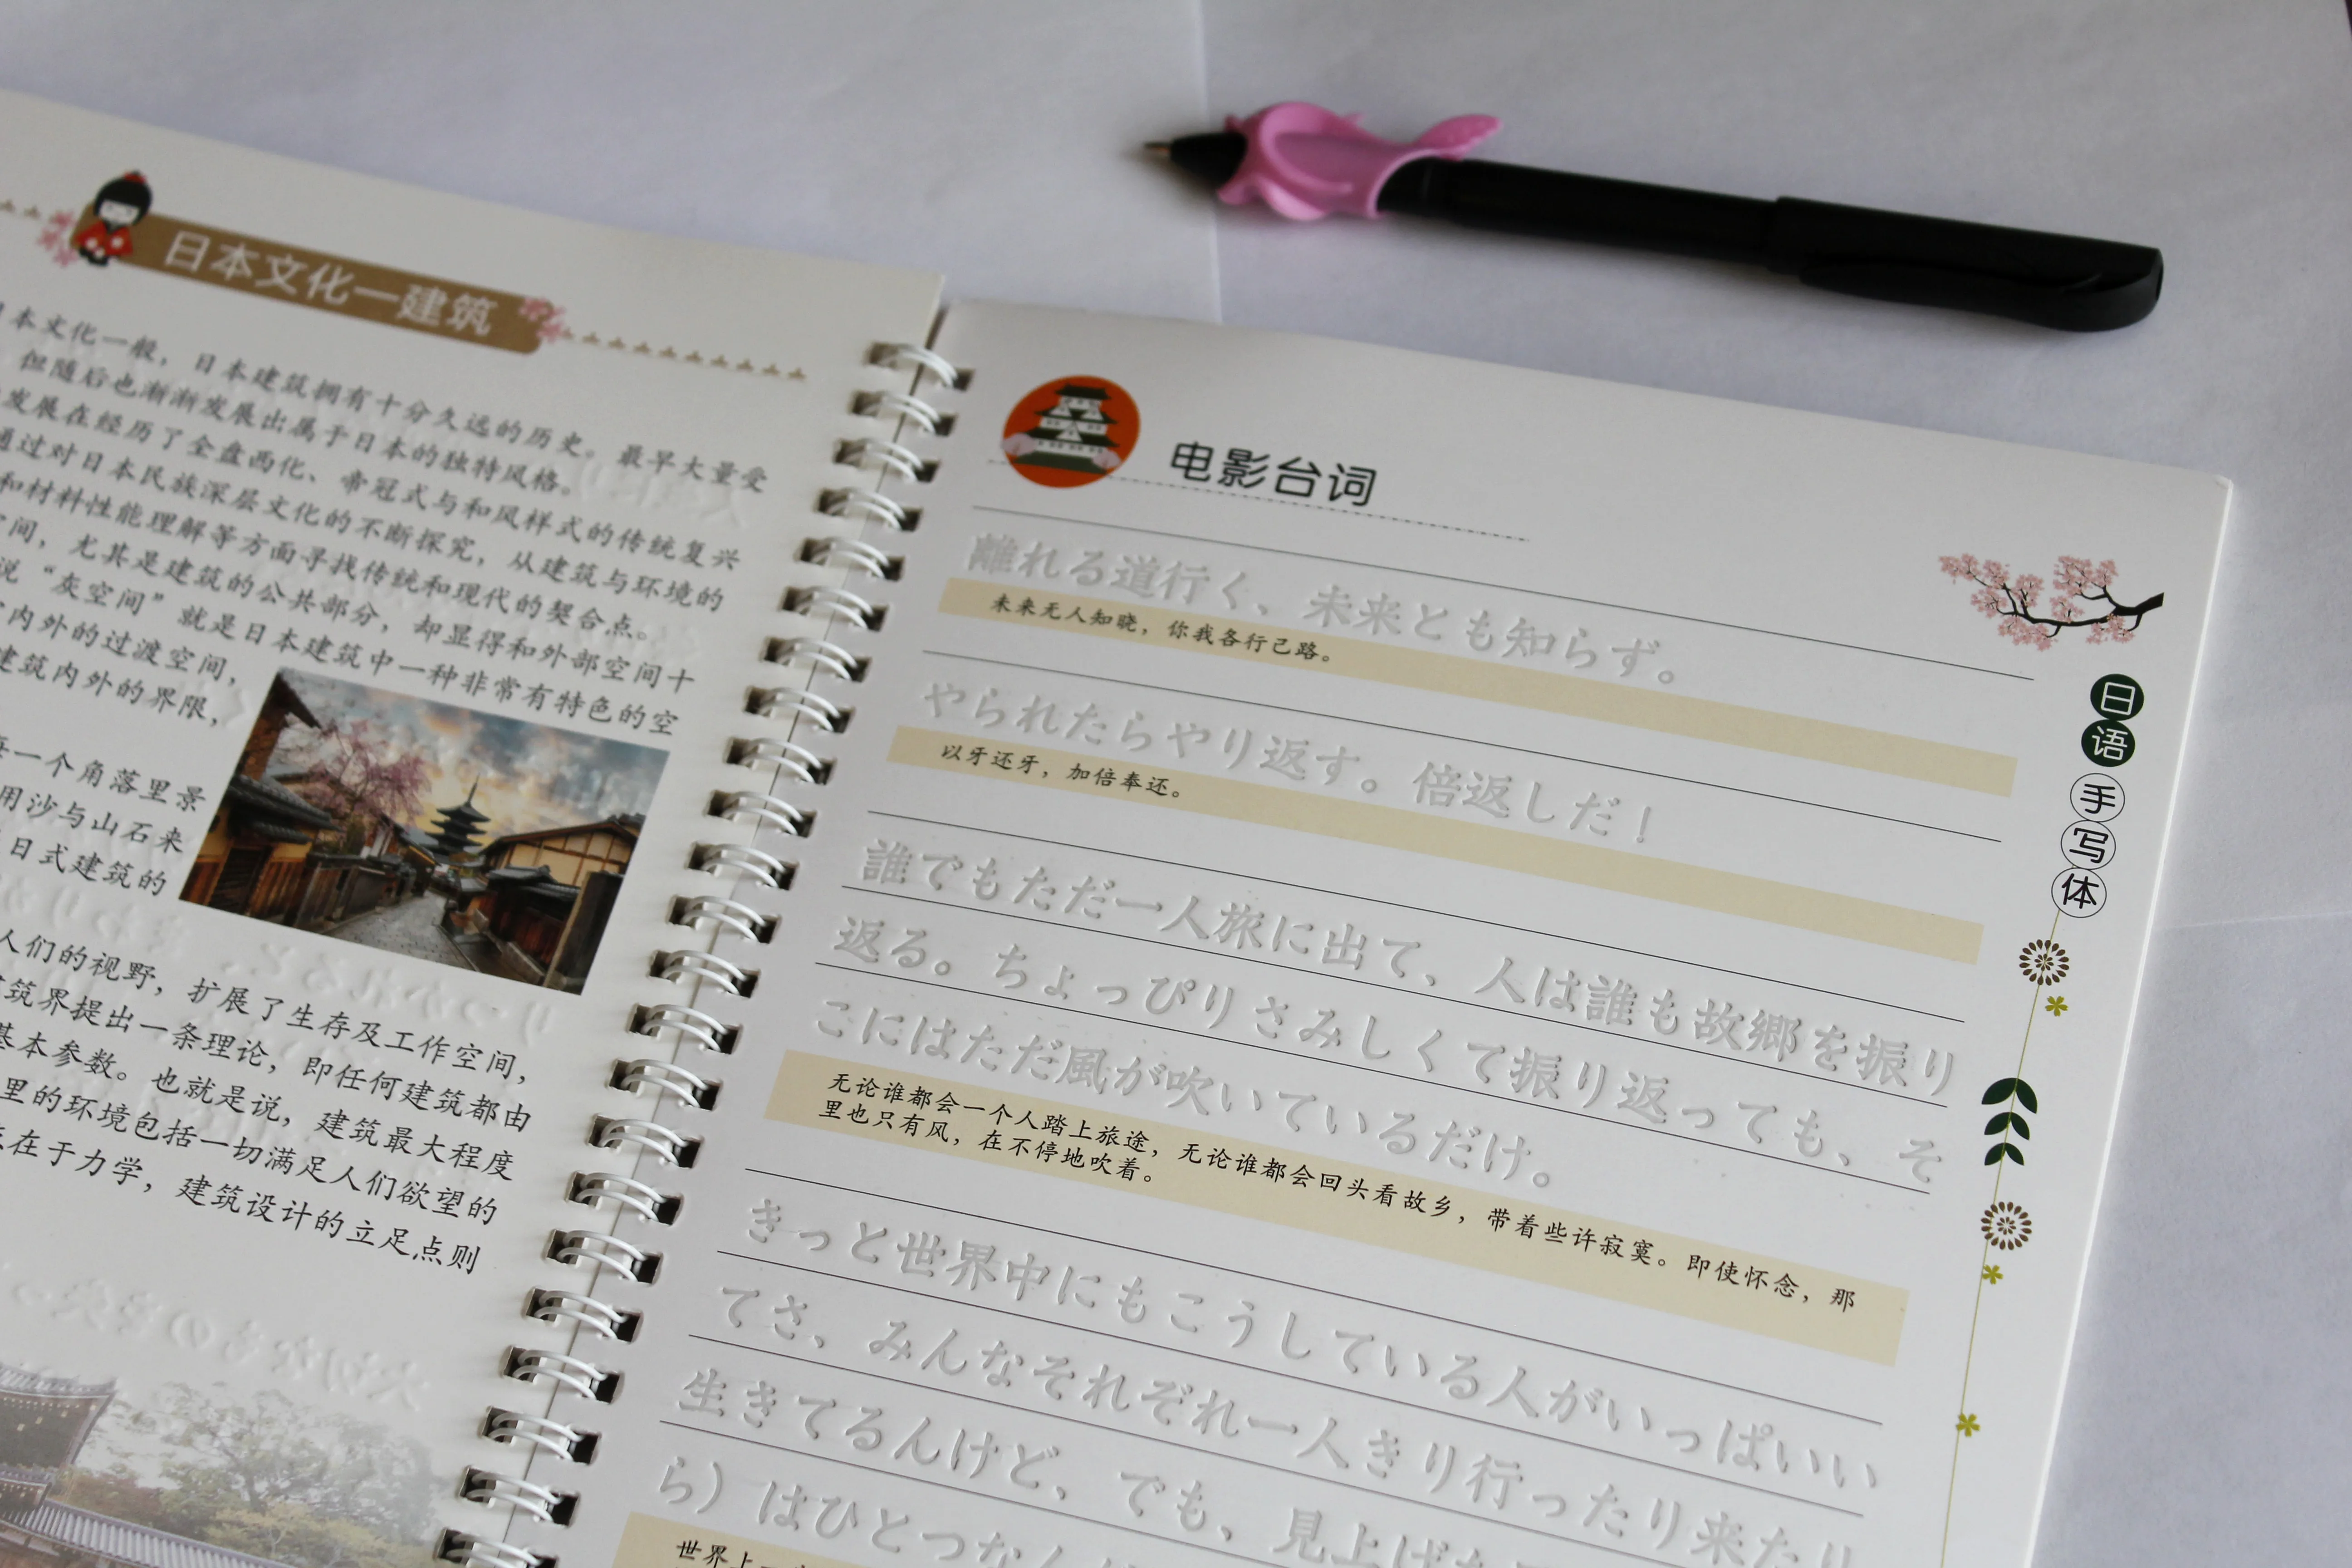 日本文化—建筑
本文化一般，日本建筑拥有十分久远的历史。最早大量受
但随后也渐渐发展出属于日本的独特风格。
发展在经历了全盘西化、帝冠式与和风样式的传统复兴
通过对日本民族深层文化的不断探究，从建筑与环境的
和材料性能理解等方面寻找传统和现代的契合点。
间，尤其是建筑的公共部分，却显得和外部空间十
说“灰空间”就是日本建筑中一种非常有特色的空
内外的过渡空间，
建筑内外的界限，
每一个角落里景
用沙与山石来
日式建筑的
人们的视野，扩展了生存及工作空间，
筑界提出一条理论，即任何建筑都由
基本参数。也就是说，建筑最大程度
里的环境包括一切满足人们欲望的
在于力学，建筑设计的立足点则
电影台词
離れる道行く、未来とも知らず。
未来无人知晓，你我各行己路。
やられたらやり返す。倍返しだ！
以牙还牙，加倍奉还。
誰でもただ一人旅に出て、人は誰も故郷を振り
返る。ちょっぴりさみしくて振り返っても、そ
こにはただ風が吹いているだけ。
无论谁都会一个人踏上旅途，无论谁都会回头看故乡，带着些许寂寞。即使怀念，那
里也只有风，在不停地吹着。
きっと世界中にもこうしている人がいっぱいい
てさ、みんなそれぞれ一人きり行ったり来たり
生きてるんけど、でも、見上げ
ら）はひとつなん
世界上
日语手写体